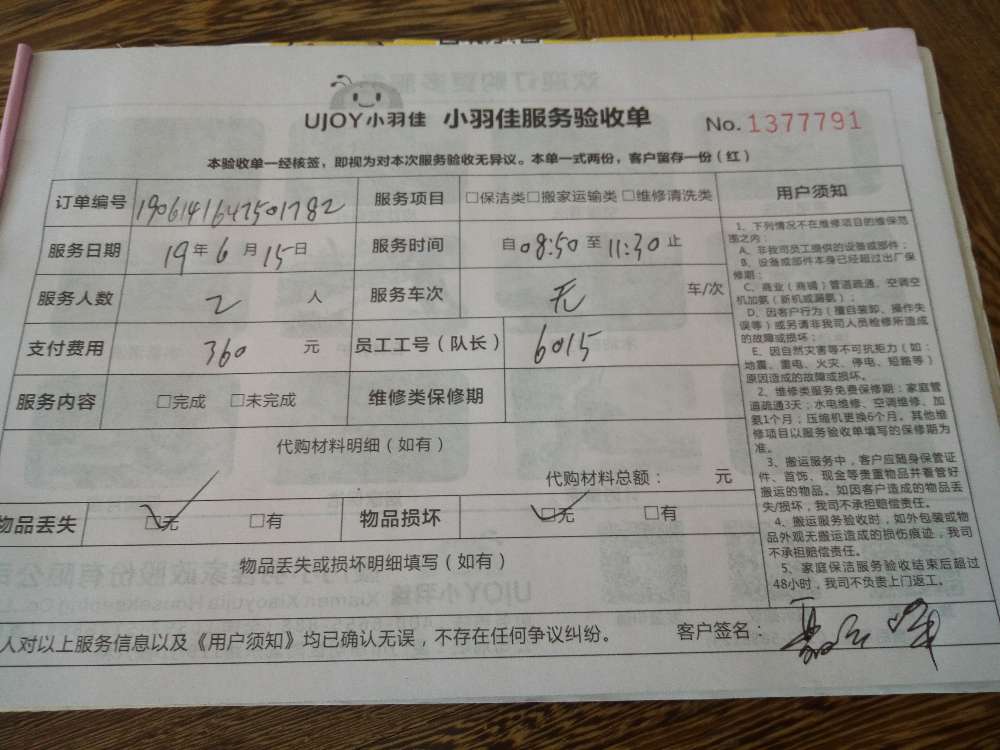 UJOY小羽佳 小羽佳服务验收单 No. 1377791
本验收单一经核签，即视为对本次服务验收无异议。本单一式两份，客户留存一份（红）
订单编号 1906141647501782 服务项目 □保洁类□搬家运输类 □维修清洗类
服务日期 19年6月15日 服务时间 自08:50至11:30止
服务人数 2 人 服务车次 无 车/次
支付费用 360 元 员工工号（队长） 6015
服务内容 □完成 □未完成 维修类保修期
代购材料明细（如有）
代购材料总额： 元
物品丢失 □无 □有 物品损坏 □无 □有
物品丢失或损坏明细填写（如有）
人对以上服务信息以及《用户须知》均已确认无误，不存在任何争议纠纷。 客户签名：
用户须知
1、下列情况不在维修项目的维保范
围之内：
A、非我司员工提供的设备或部件；
B、设备或部件本身已经超过出厂保
修期；
C、商业（商铺）管道疏通、空调空
机加氨（新机或漏氨）；
D、因客户行为（擅自装卸、操作失
误等）或另请非我司人员检修所造成
的故障或损坏；
E、因自然灾害等不可抗拒力（如：
地震、雷电、火灾、停电、短路等）
原因造成的故障或损坏。
2、维修类服务免费保修期：家庭管
道疏通3天；水电维修、空调维修、加
氨1个月；压缩机更换6个月。其他维
修项目以服务验收单填写的保修期为
准。
3、搬运服务中，客户应随身保管证
件、首饰、现金等贵重物品并看管好
搬运的物品。如因客户造成的物品丢
失/损坏，我司不承担赔偿责任。
4、搬运服务验收时，如外包装或物
品外观无搬运造成的损伤痕迹，我司
不承担赔偿责任。
5、家庭保洁服务验收结束后超过
48小时，我司不负责上门返工。